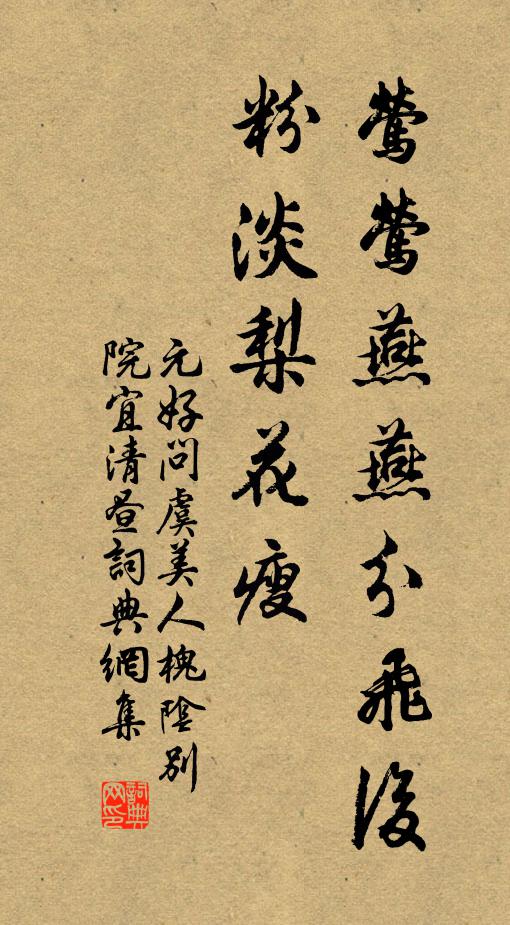 鶯鶯燕燕分飛後
粉淡梨花瘦
元好問虞美人槐陰別
院宜清晝詞典網集
詞典
网印